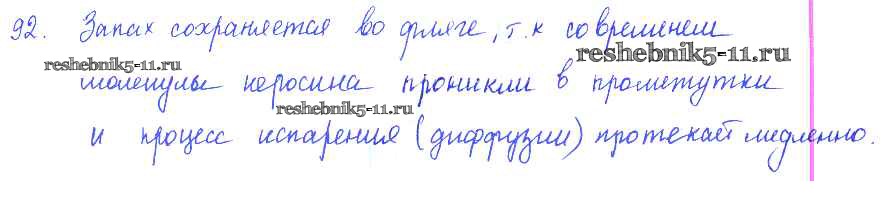 92. Запах сохраняется во фляге, т.к со временем
reshebnik5-11.ru
reshebnik5-11.ru
молекулы керосина проникли в промежутки
reshebnik5-11.ru
и процесс испарения (диффузии) протекает медленно.